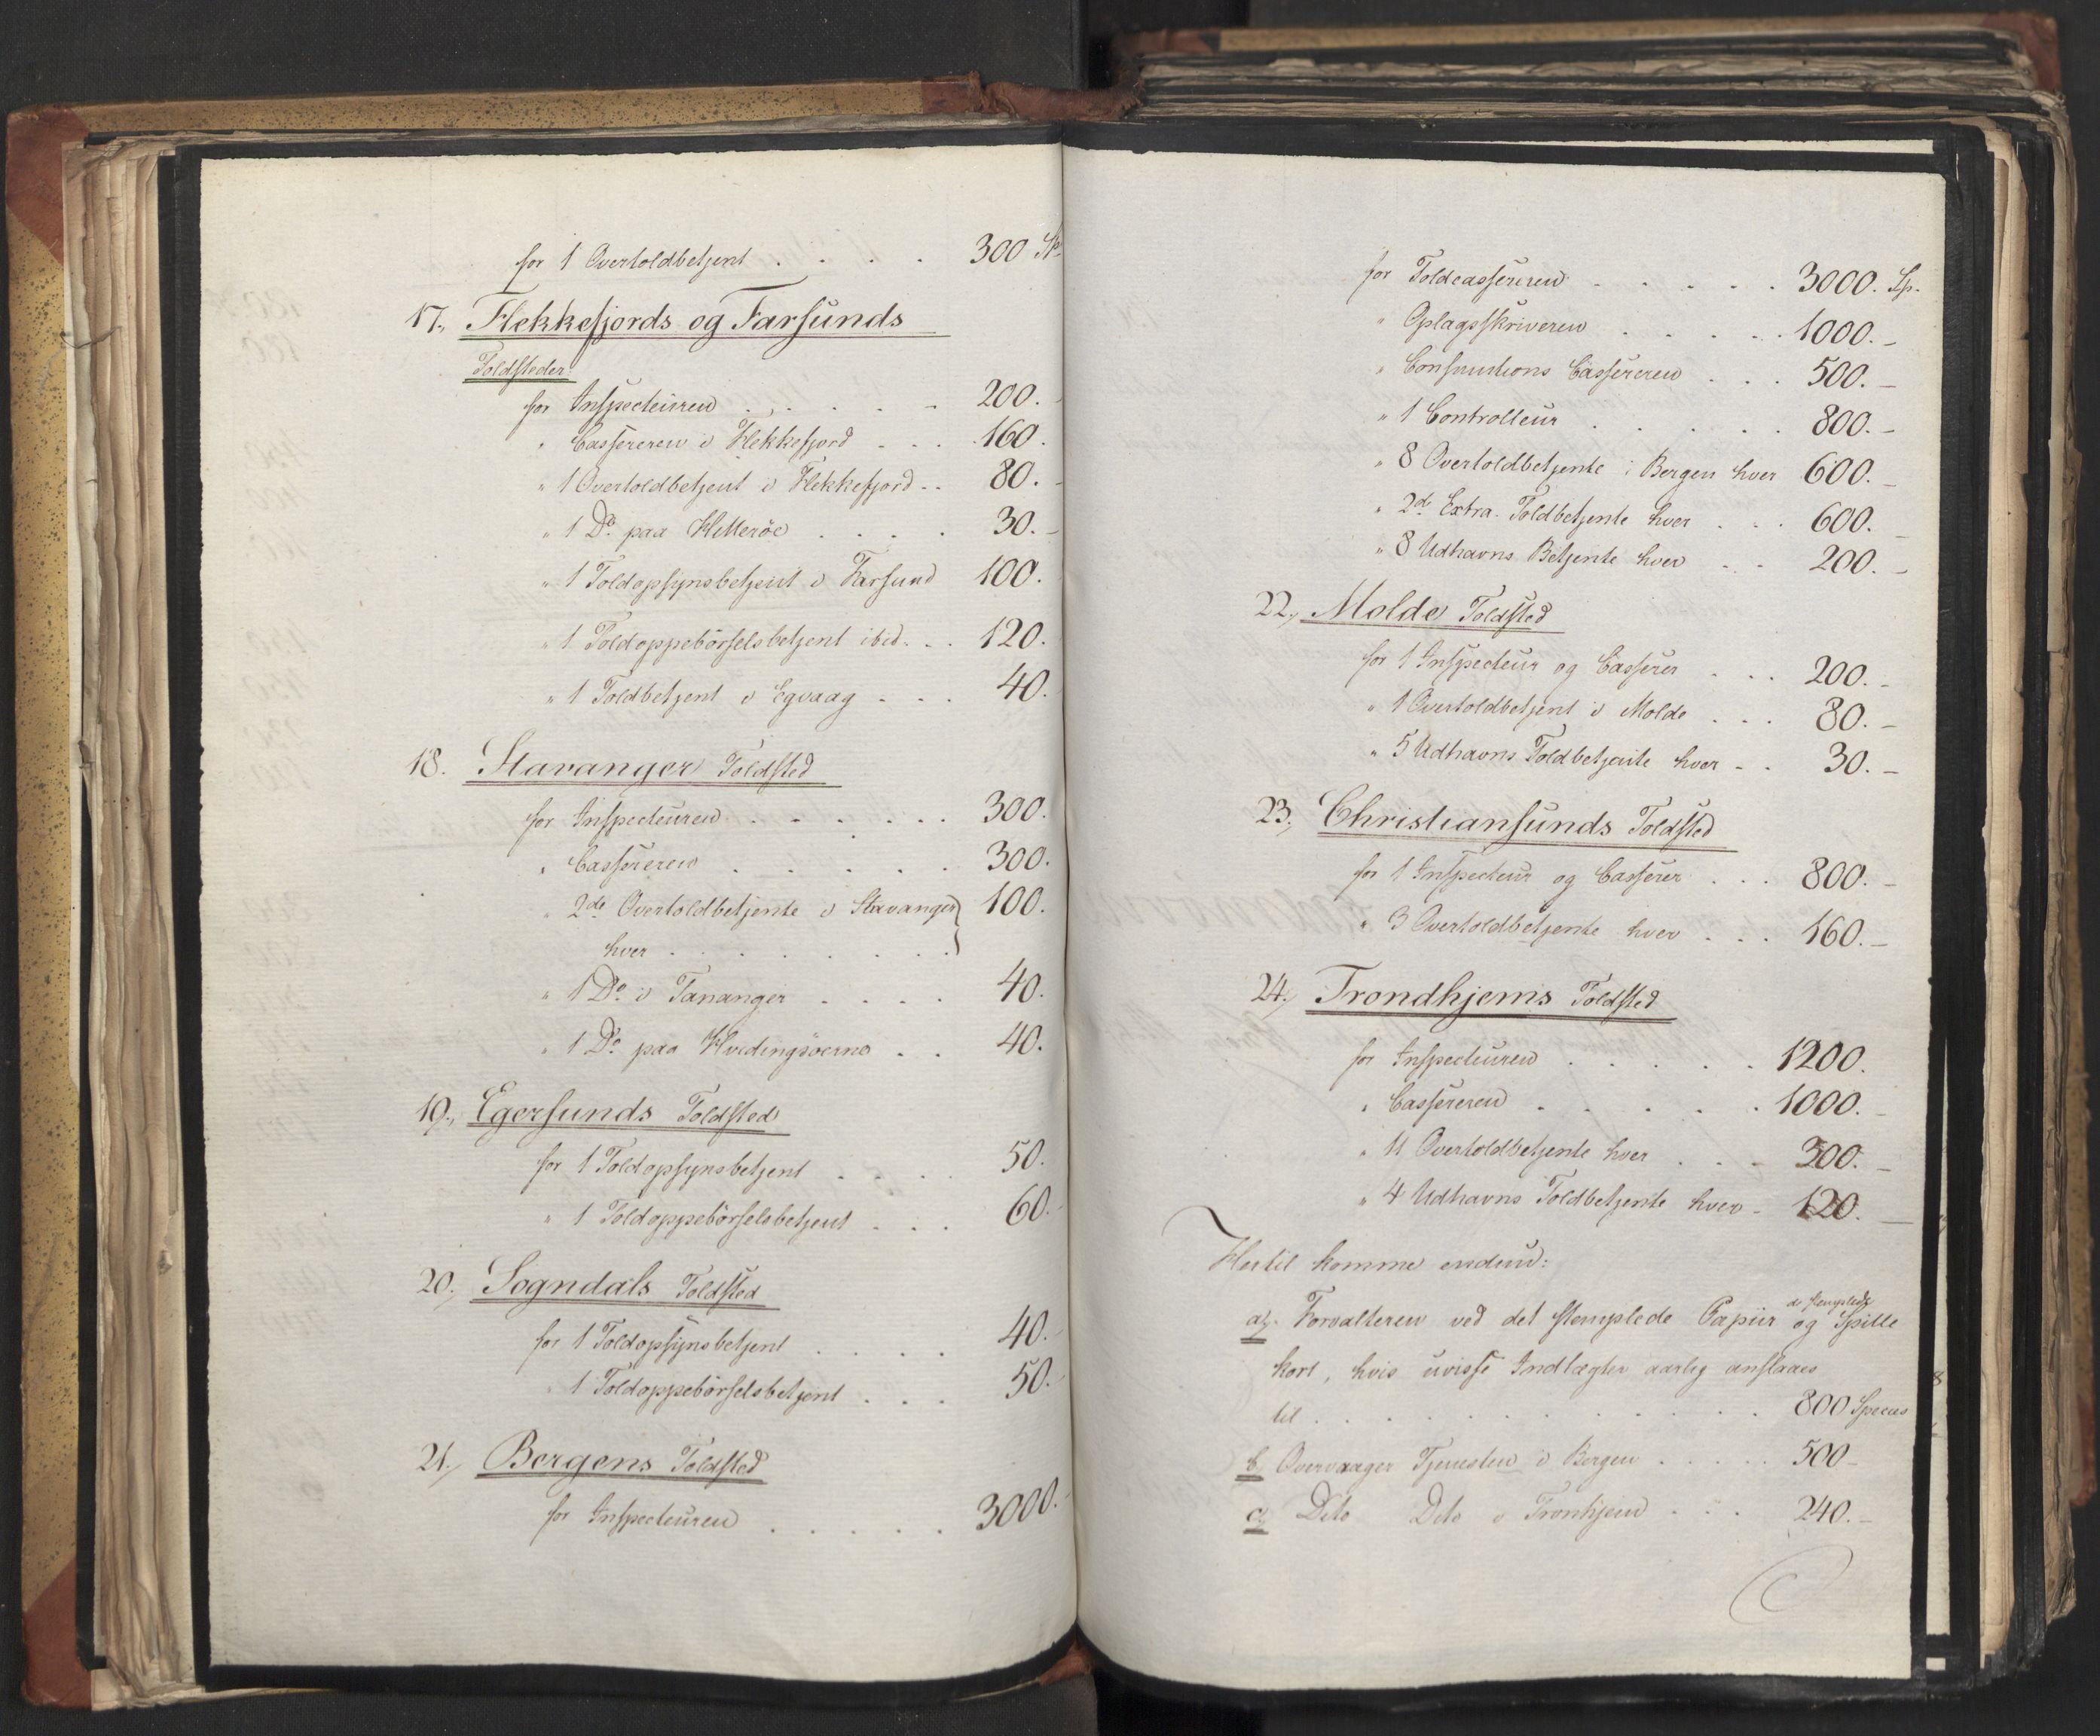 for 1 Overtoldbetjent . . . . 300 Sp.
17., Flekkefjords og Farsunds
Toldsteder:
for Inspecteuren . . . . . 200.
" Cassereren i Flekkefjord . . . 160.
" 1 Overtoldbetjent i Flekkefjord . . 80.
" 1 Do. paa Hitteröe . . . . 30.
" 1 Toldopsynsbetjent i Farsund 100.
" 1 Toldoppebörselsbetjent ibid. . . 120.
" 1 Toldbetjent i Egvaag . . . 40.
18. Stavanger Toldsted
for Inspecteuren . . . . . . 300.
" Cassereren . . . . . 300.
" 2de Overtoldbetjente i Stavanger } 100.
hver . . . . . . .
" 1 Do. i Tananger . . . . 40.
" 1 Do. paa Hvidingsöerne . . 40.
19., Egersunds Toldsted
for 1 Toldopsynsbetjent . . . . 50.
" 1 Toldoppebörselsbetjent . . . 60.
20., Sogndals Toldsted
for 1 Toldopsynsbetjent . . . . 40.
" 1 Toldoppebörselsbetjent . . . 50.
21., Bergens Toldsted
for Inspecteuren . . . . . 3000.
for Toldcassereren . . . . . 3000. Sp.
" Oplagsskriveren . . . . . 1000. –
" Consumtions Cassereren . . . 500. –
" 1 Controlleur . . . . . 800. –
" 8 Overtoldbetjente i Bergen hver 600. –
" 2de Extra Toldbetjente hver . . . 600. –
" 8 Udhavns Betjente hver . . . 200. –
22., Molde Toldsted
for 1 Inspecteur og Casserer . . . 200. –
" 1 Overtoldbetjent i Molde . . . 80. –
" 5 Udhavns Toldbetjente hver . . 30. –
23., Christiansunds Toldsted
for 1 Inspecteur og Casserer . . . 800. –
" 3 Overtoldbetjente hver . . . 160. –
24., Trondhjems Toldsted
for Inspecteuren . . . . . 1200.
" Cassereren . . . . . 1000. –
" 11 Overtoldbetjente hver . . . 300. –
" 4 Udhavns Toldbetjente hver . 120. –
Hertil komme endnu:
a). Forvalteren ved det stemplede Papiir og de stemplede Spille
kort, hvis uvisse Indtægter aarlig anslaaes
til . . . . . . . . . . . 800 Species
b) Overvrager Tjenesten i Bergen . . . . . 500 –
c) Dito Dito i Tronhjem . . . 240. –